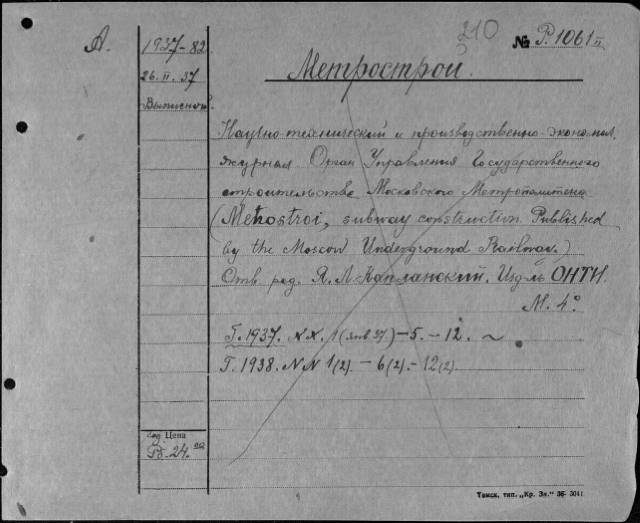 210
А. 1937-82 № Р.1061 II
26.II.37 Метрострой.
Выписной
Научно-технический и производственно-эконом.
журнал. Орган Управления Государственного
строительства Московского Метрополитена
(Metrostroi, subway construction. Published
by the Moscow Underground Railway.)
Отв. ред. Я. Л. Каплянский. Изд-во ОНТИ.
М. 4°
Г. 1937. NN. 1 (янв. 37.) - 5. - 12. ~
Г. 1938. NN 1(2). - 6(2). - 12(2).
год. Цена
Р. 24.00
Томск, тип. „Кр. Зн.“ 36- 3041